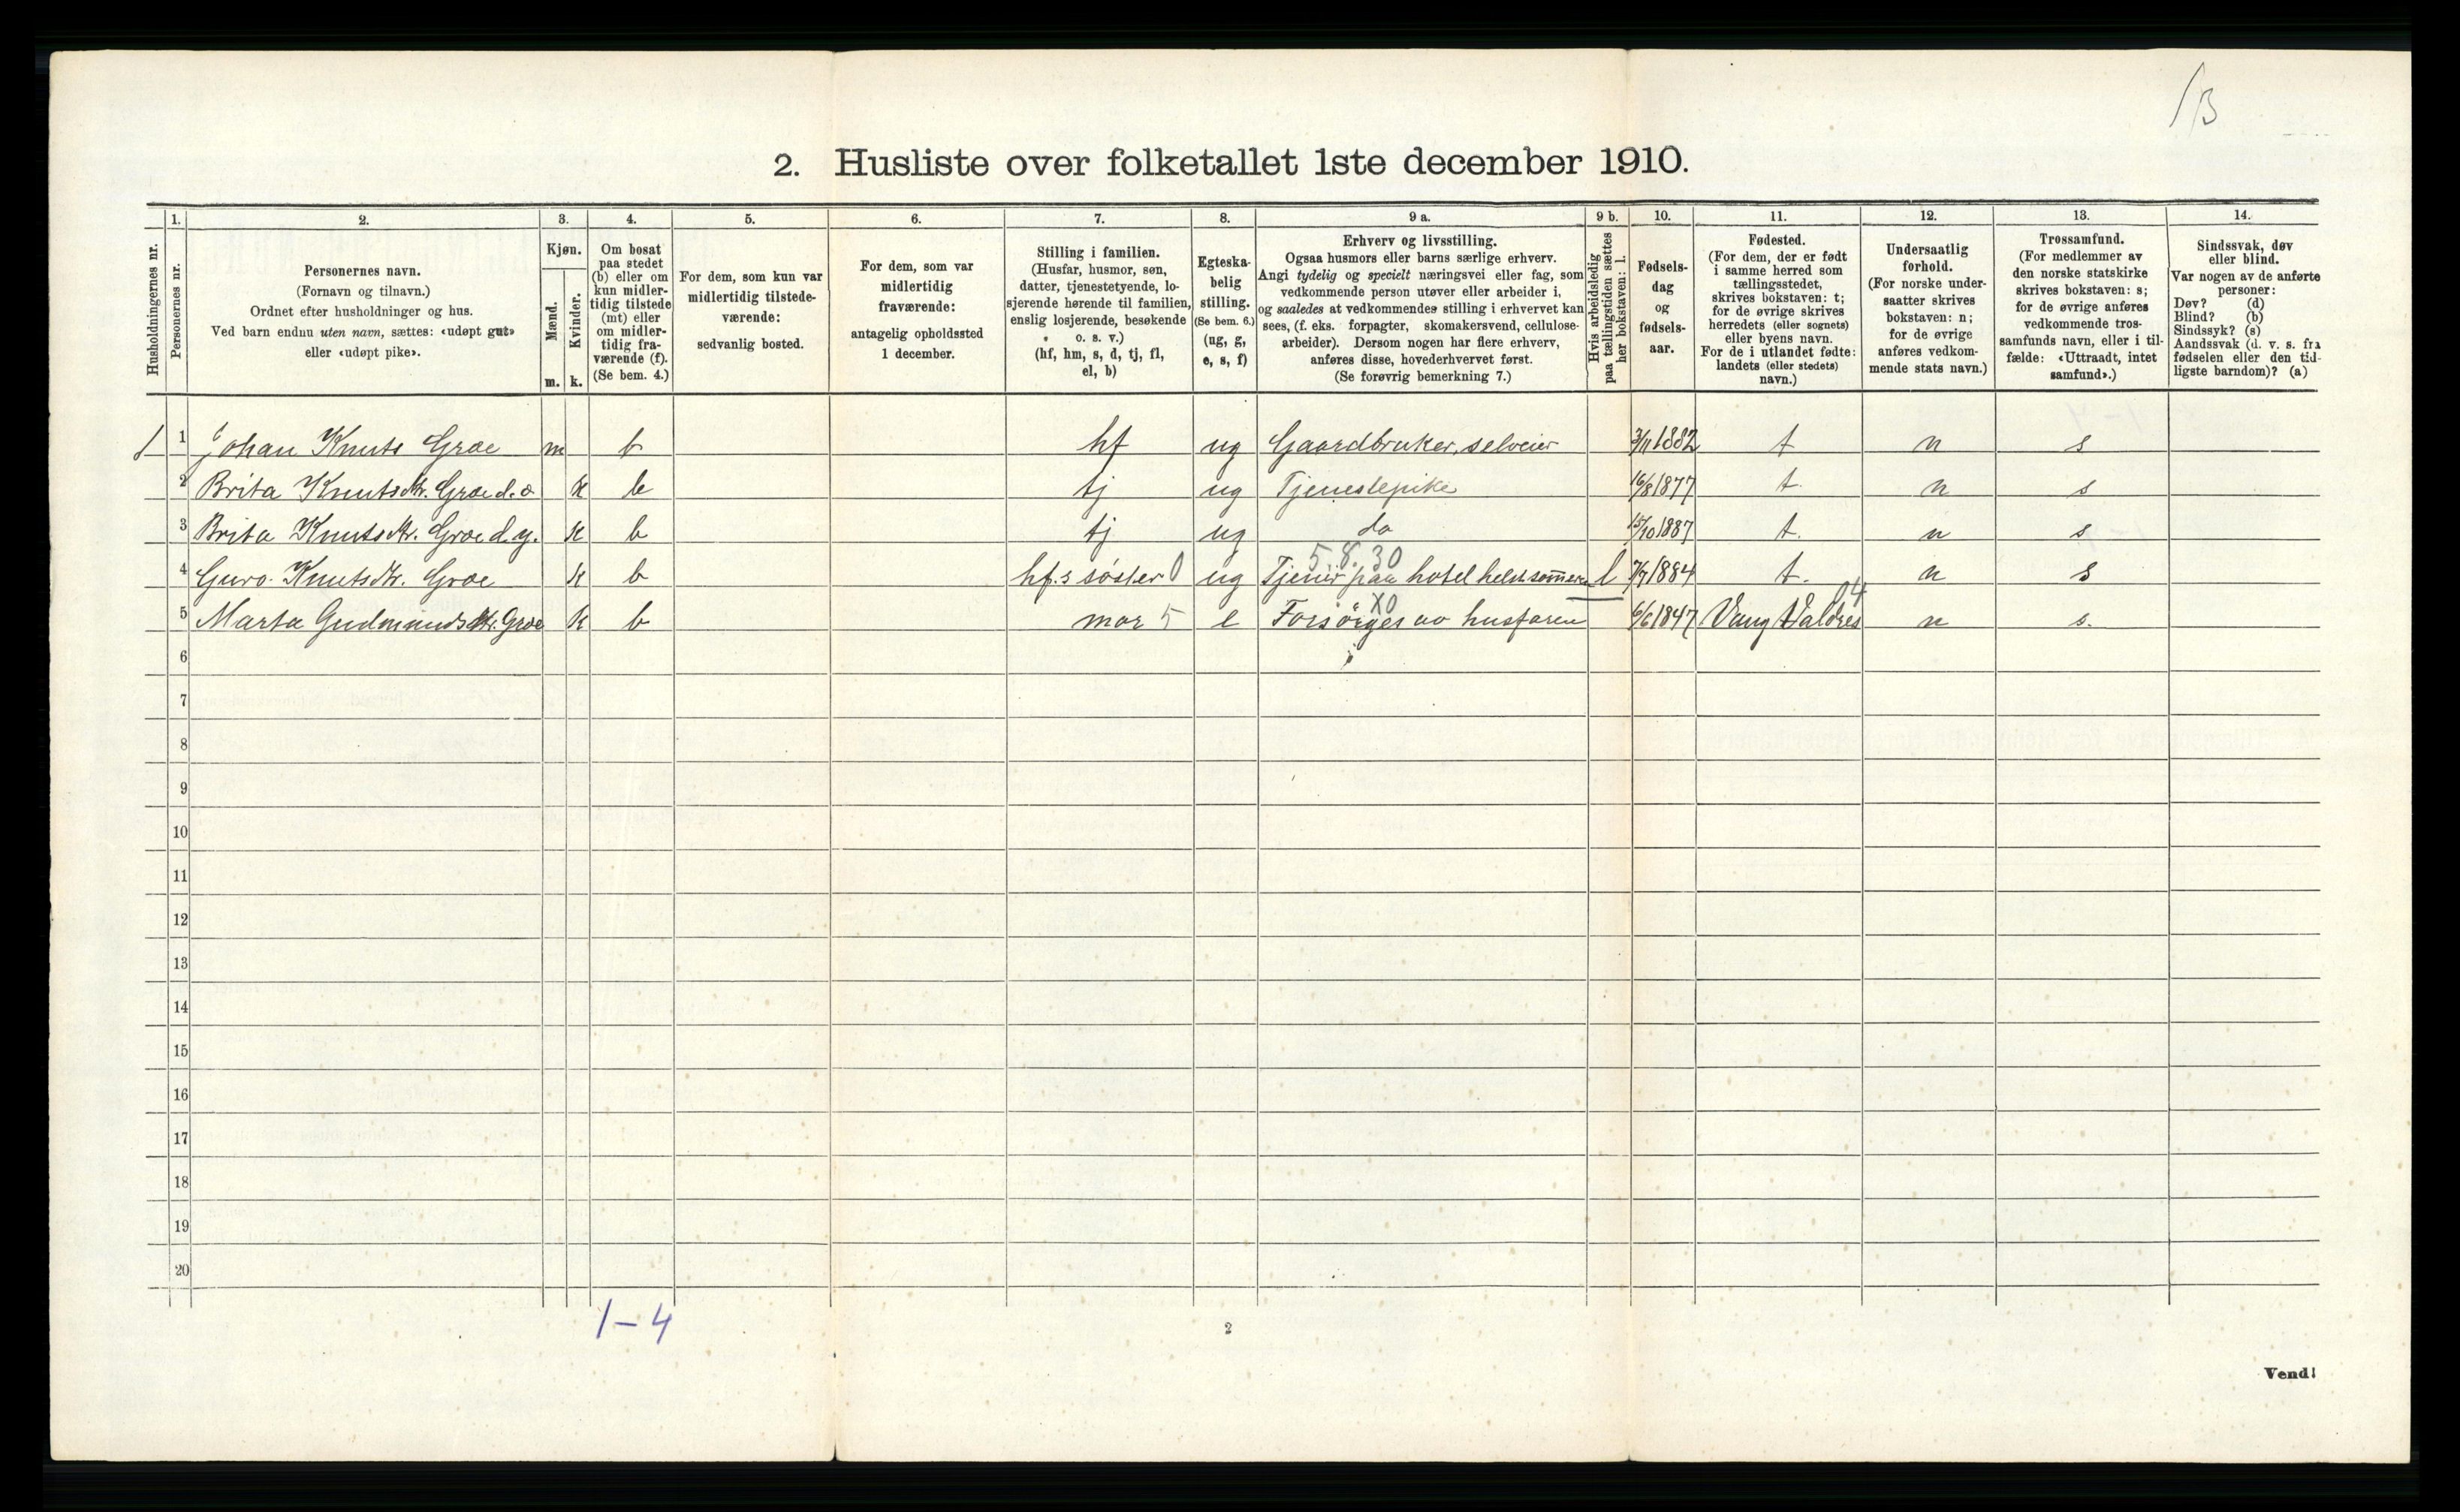 1B
2. Husliste over folketallet 1ste december 1910.
Husholdningernes nr.
1. Personernes nr.
2. Personernes navn. (Fornavn og tilnavn.) Ordnet efter husholdninger og hus. Ved barn endnu uten navn, sættes: «udøpt gut» eller «udøpt pike».
3. Kjøn. Mænd. m. Kvinder. k.
4. Om bosat paa stedet (b) eller om kun midlertidig tilstede (mt) eller om midlertidig fraværende (f). (Se bem. 4.)
5. For dem, som kun var midlertidig tilstedeværende: sedvanlig bosted.
6. For dem, som var midlertidig fraværende: antagelig opholdssted 1 december.
7. Stilling i familien. (Husfar, husmor, søn, datter, tjenestetyende, losjerende hørende til familien, enslig losjerende, besøkende o. s. v.) (hf, hm, s, d, tj, fl, el, b)
8. Egteskabelig stilling. (Se bem. 6.) (ug, g, e, s, f)
9 a. Erhverv og livsstilling. Ogsaa husmors eller barns særlige erhverv. Angi tydelig og specielt næringsvei eller fag, som vedkommende person utøver eller arbeider i, og saaledes at vedkommendes stilling i erhvervet kan sees, (f. eks. forpagter, skomakersvend, cellulosearbeider). Dersom nogen har flere erhverv, anføres disse, hovederhvervet først. (Se forøvrig bemerkning 7.)
9 b. Hvis arbeidsledig paa tællingstiden sættes her bokstaven: l.
10. Fødselsdag og fødselsaar.
11. Fødested. (For dem, der er født i samme herred som tællingsstedet, skrives bokstaven: t; for de øvrige skrives herredets (eller sognets) eller byens navn. For de i utlandet fødte: landets (eller stedets) navn.)
12. Undersaatlig forhold. (For norske undersaatter skrives bokstaven: n; for de øvrige anføres vedkommende stats navn.)
13. Trossamfund. (For medlemmer av den norske statskirke skrives bokstaven: s; for de øvrige anføres vedkommende trossamfunds navn, eller i tilfælde: «Uttraadt, intet samfund».)
14. Sindssvak, døv eller blind. Var nogen av de anførte personer: Døv? (d) Blind? (b) Sindssyk? (s) Aandssvak (d. v. s. fra fødselen eller den tidligste barndom)? (a)
1 1 Johan Knuts Groe m b hf ug Gaardbruker, selveier 3/11 1882 t n s
2 Brita Knutsdtr. Groe d.e. k b tj ug Tjenestepike 16/8 1877 t. n s
3 Brita Knutsdtr. Groe d.y. k b tj ug do 15/10 1887 t. n s
5.8.30
4 Guro Knutsdtr. Groe k b hf.s søster 0 ug Tjener paa hotel helst sommeren l 7/7 1884 t. n s
X0 04
5 Marta Gudmundsdtr. Groe k b mor 5 e Forsørges av husfaren 6/6 1847 Vang Valdres n s.
6
7
8
9
10
11
12
13
14
15
16
17
18
19
20
1-4
2
Vend!